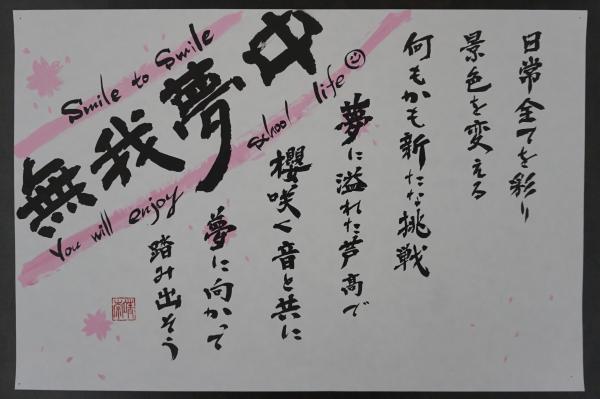 日常全てを彩り
景色を変える
何もかも新たな挑戦
夢に溢れた芦高で
櫻咲く音と共に
夢に向かって
踏み出そう
Smile to Smile
無我夢中
You will enjoy school life